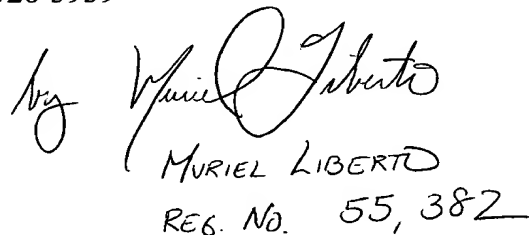 by Muriel Liberto
MURIEL LIBERTO
REG. NO. 55,382